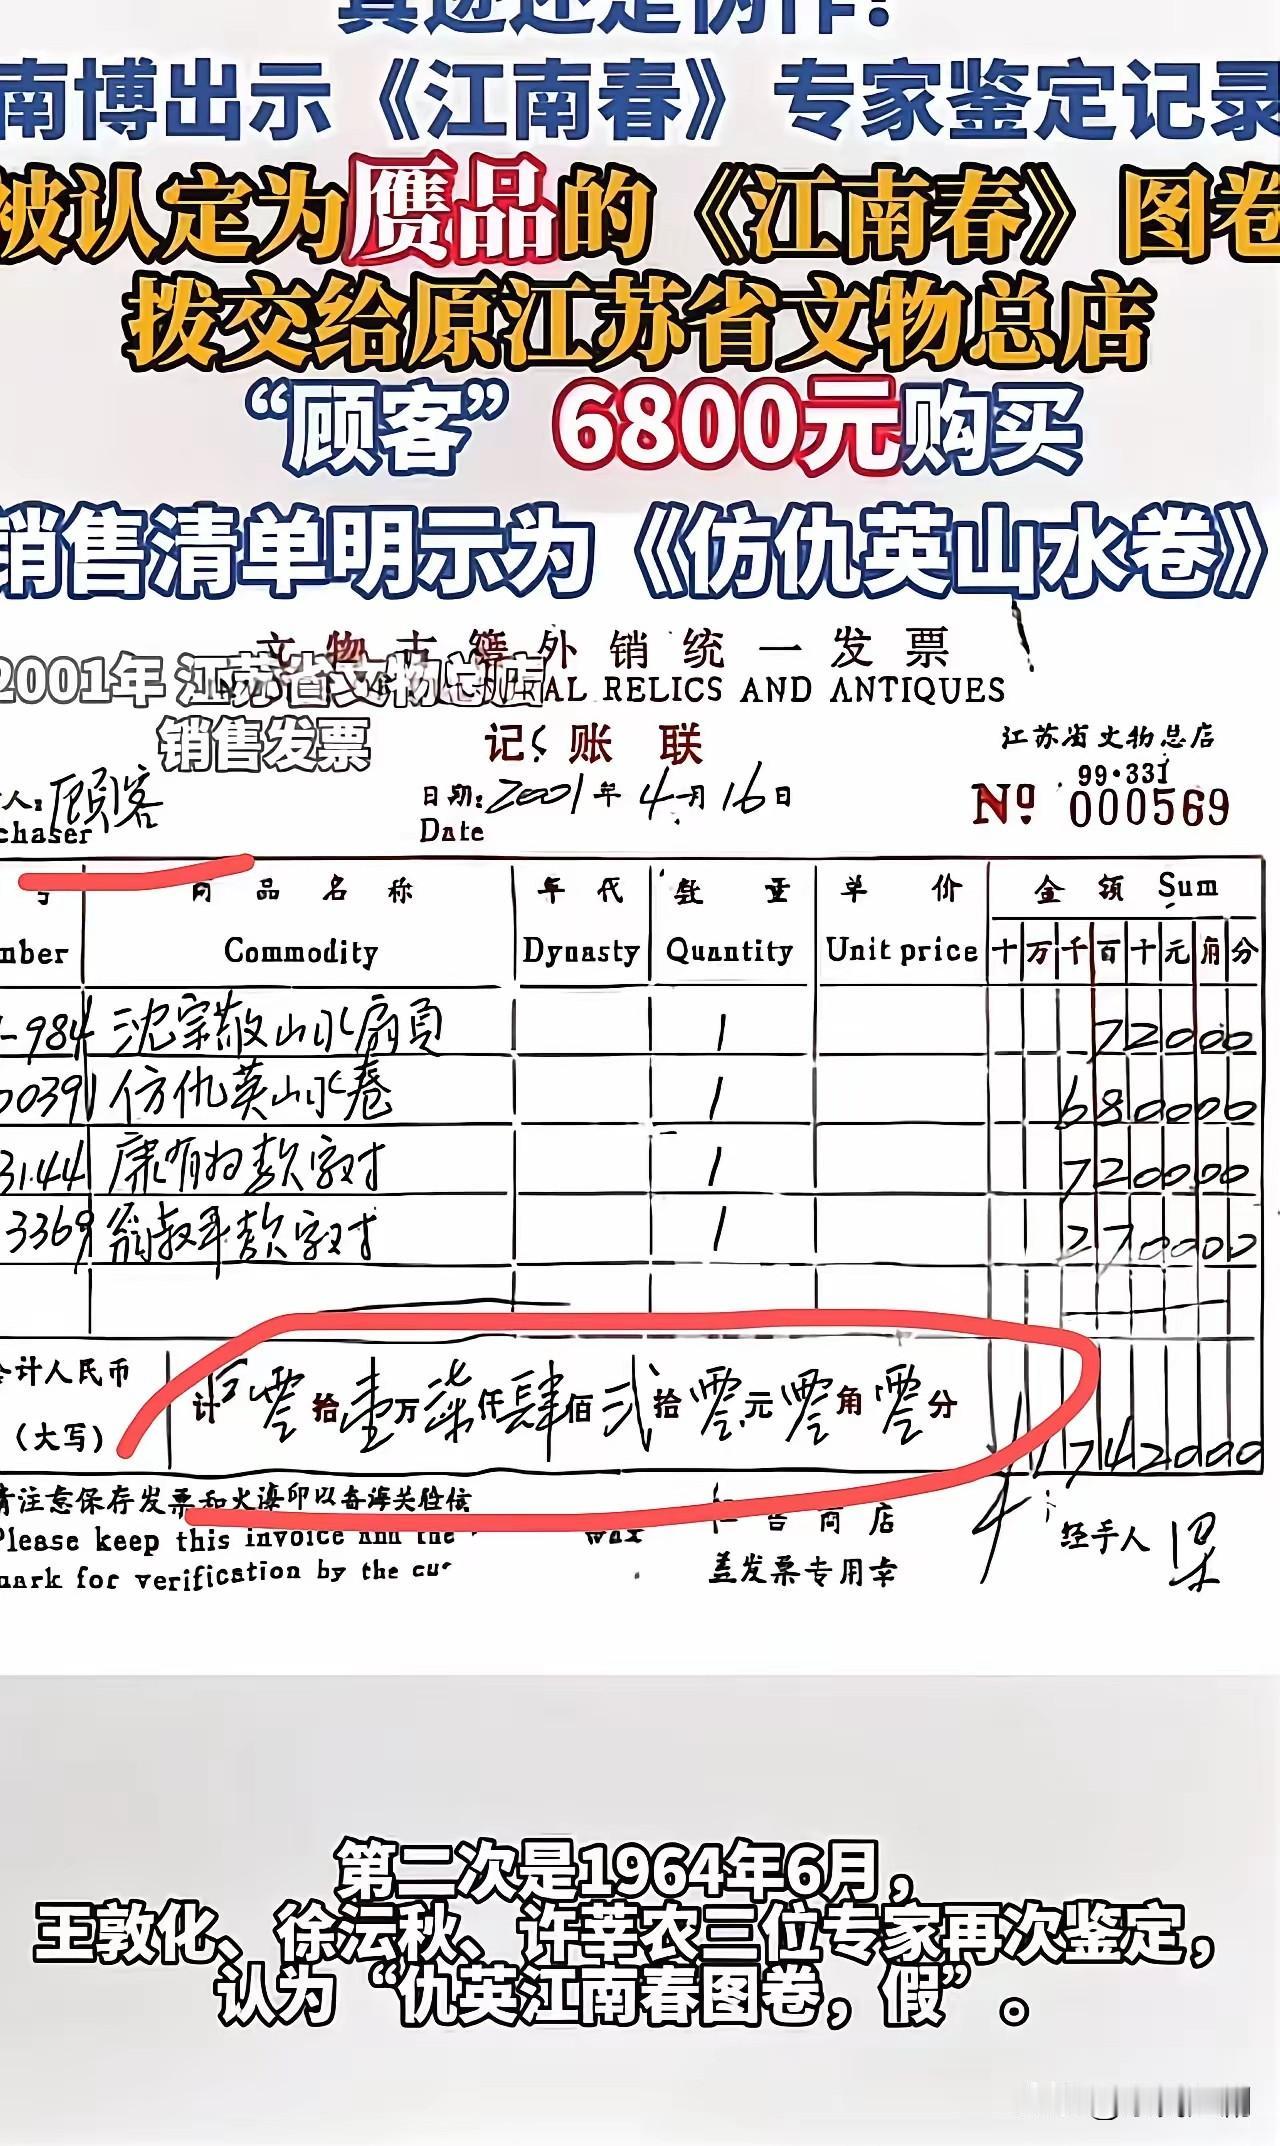 真迹还是伪作？
南博出示《江南春》专家鉴定记录
被认定为赝品的《江南春》图卷
拨交给原江苏省文物总店
“顾客”6800元购买
销售清单明示为《仿仇英山水卷》
外销统一发票
2001年 江苏省文物总店
AL RELICS AND ANTIQUES
销售发票
记账联
江苏省文物总店
99·331
人：顾客
chaser
日期：2001年4月16日
Date
Nº 000569
号 商品名称 年代 数量 单价 金额 Sum
mber Commodity Dynasty Quantity Unit price 十万千百十元角分
-984 沈宗敬山水扇页 1 72000
00391 仿仇英山水卷 1 680000
31.44 康有为款字对 1 720000
3369 翁叔平款字对 1 270000
合计人民币
（大写）
计 零拾壹万柒仟肆佰贰拾零元零角零分 1742000
请注意保存发票和火漆印以备海关验
Please keep this invoice and the wax
mark for verification by the cu
售商店
盖发票专用章
经手人
第二次是1964年6月，
王敦化、徐沄秋、许莘农三位专家再次鉴定，
认为“仇英江南春图卷，假”。